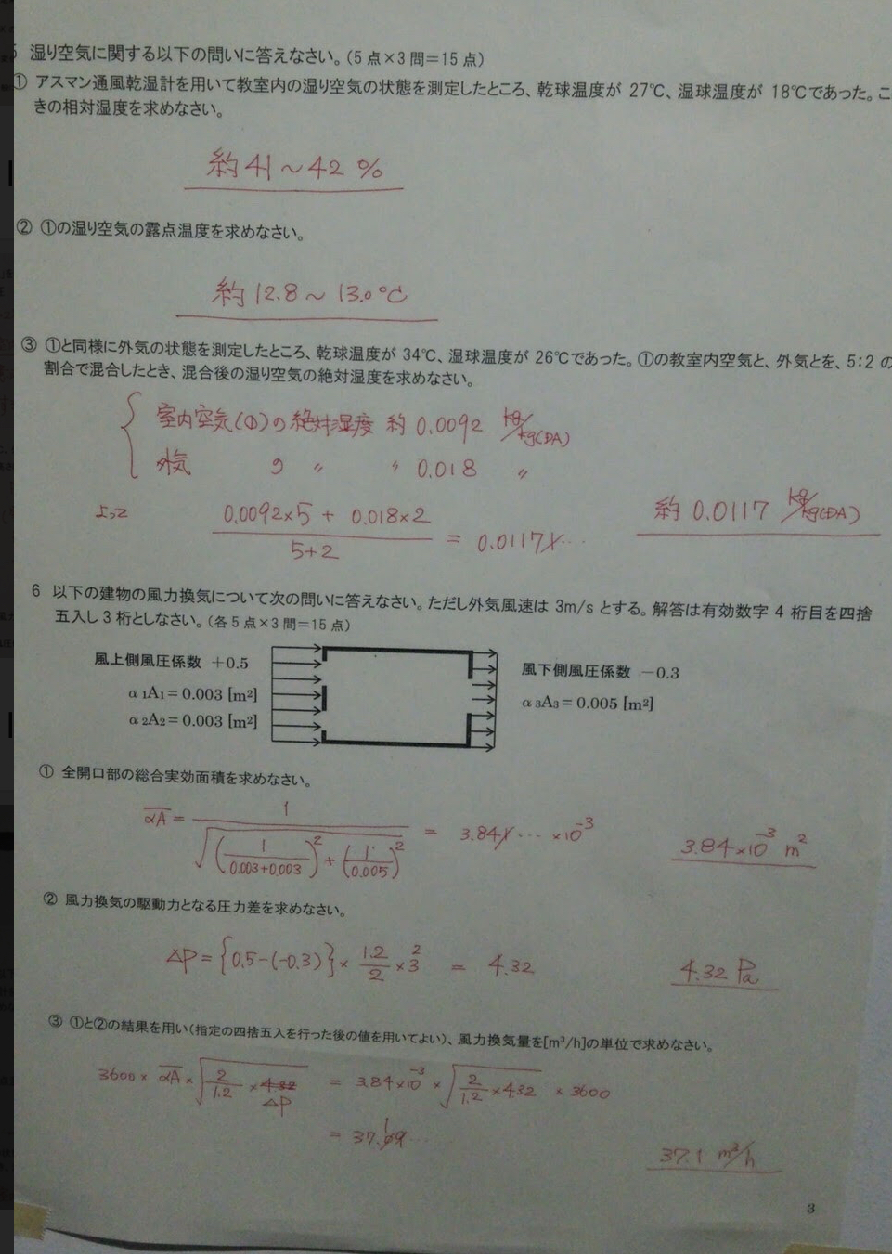 5 湿り空気に関する以下の問いに答えなさい。(5点×3問=15点)
① アスマン通風乾湿計を用いて教室内の湿り空気の状態を測定したところ、乾球温度が 27℃、湿球温度が 18℃であった。こ
きの相対湿度を求めなさい。
約41～42 %
② ①の湿り空気の露点温度を求めなさい。
約12.8～13.0℃
③ ①と同様に外気の状態を測定したところ、乾球温度が 34℃、湿球温度が 26℃であった。①の教室内空気と、外気とを、5:2 の
割合で混合したとき、混合後の湿り空気の絶対湿度を求めなさい。
室内空気(①)の絶対湿度 約 0.0092 kg/kg(DA)
外気 の 〃 〃 0.018 〃
よって (0.0092×5 + 0.018×2)/(5+2) = 0.0117... 約 0.0117 kg/kg(DA)
6 以下の建物の風力換気について次の問いに答えなさい。ただし外気風速は 3m/s とする。解答は有効数字 4 桁目を四捨
五入し 3 桁としなさい。(各5点×3問=15点)
風上側風圧係数 +0.5
α1A1=0.003 [m²]
α2A2=0.003 [m²]
風下側風圧係数 -0.3
α3A3=0.005 [m²]
① 全開口部の総合実効面積を求めなさい。
αA = 1/√((1/(0.003+0.003))² + (1/0.005)²) = 3.84... ×10⁻³ 3.84×10⁻³ m²
② 風力換気の駆動力となる圧力差を求めなさい。
ΔP = {0.5-(-0.3)} × 1.2/2 × 3² = 4.32 4.32 Pa
③ ①と②の結果を用い(指定の四捨五入を行った後の値を用いてよい)、風力換気量を[m³/h]の単位で求めなさい。
3600 × αA × √(2/1.2 × ΔP) = 3.84×10⁻³ × √(2/1.2 × 4.32) × 3600
= 37.09...
37.1 m³/h
3